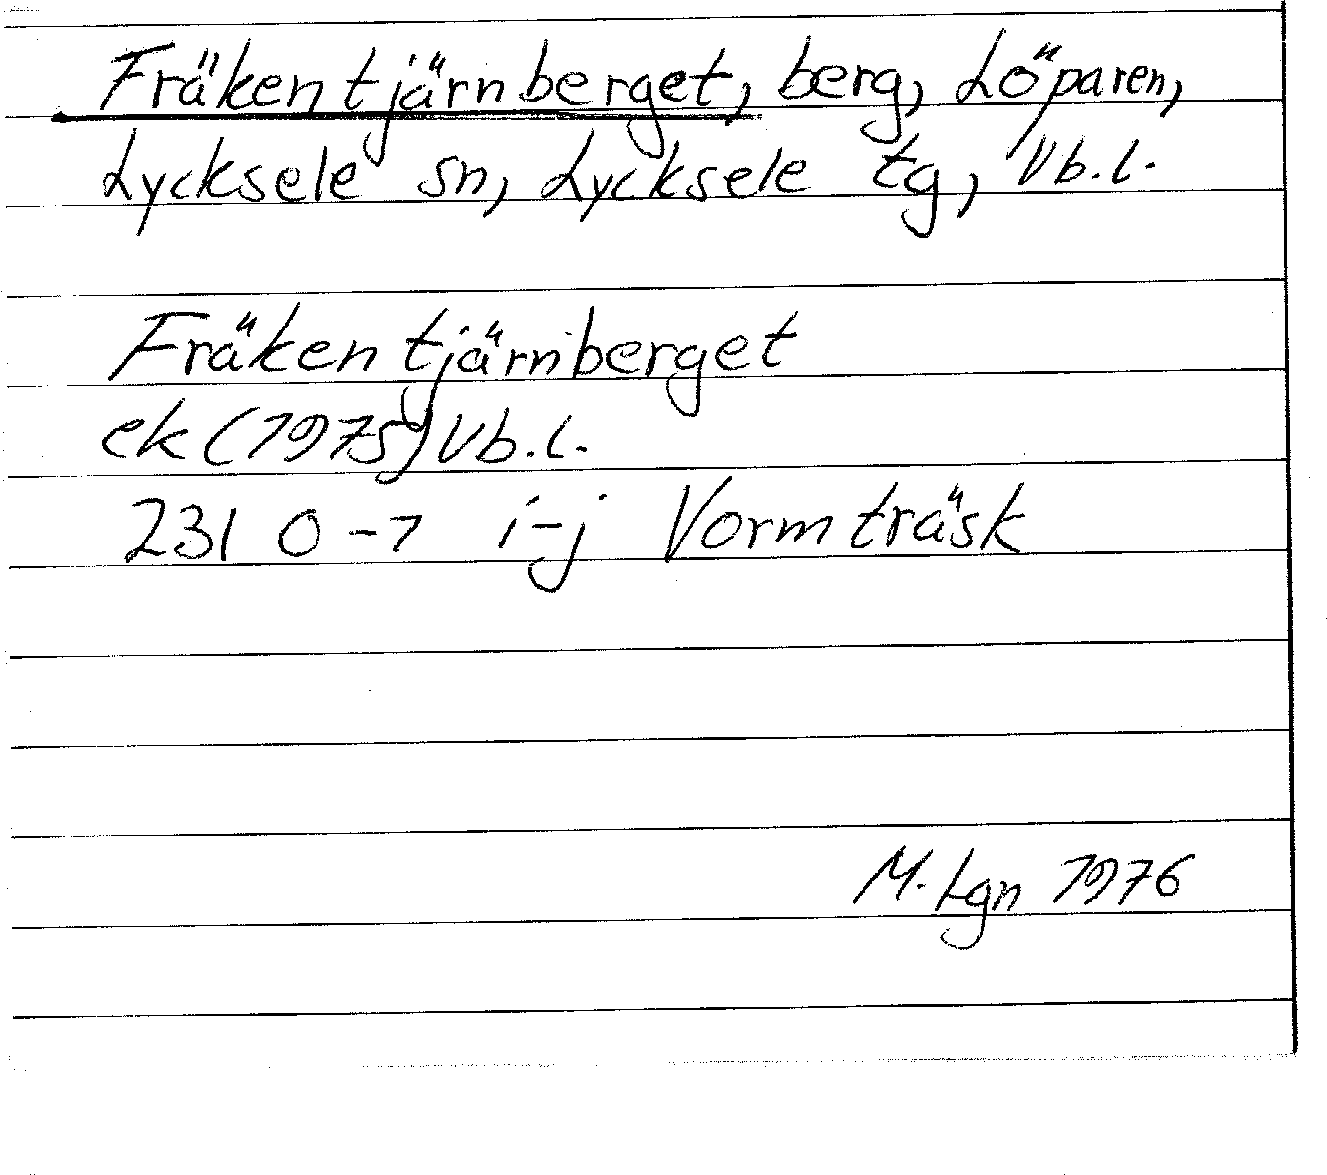 Fräkentjärnberget, berg, Löparen,
Lycksele sn, Lycksele tg, Vb.l.
Fräkentjärnberget
ek (1975) Vb.l.
23I 0-1 i-j Vormträsk
M. Lgn 1976